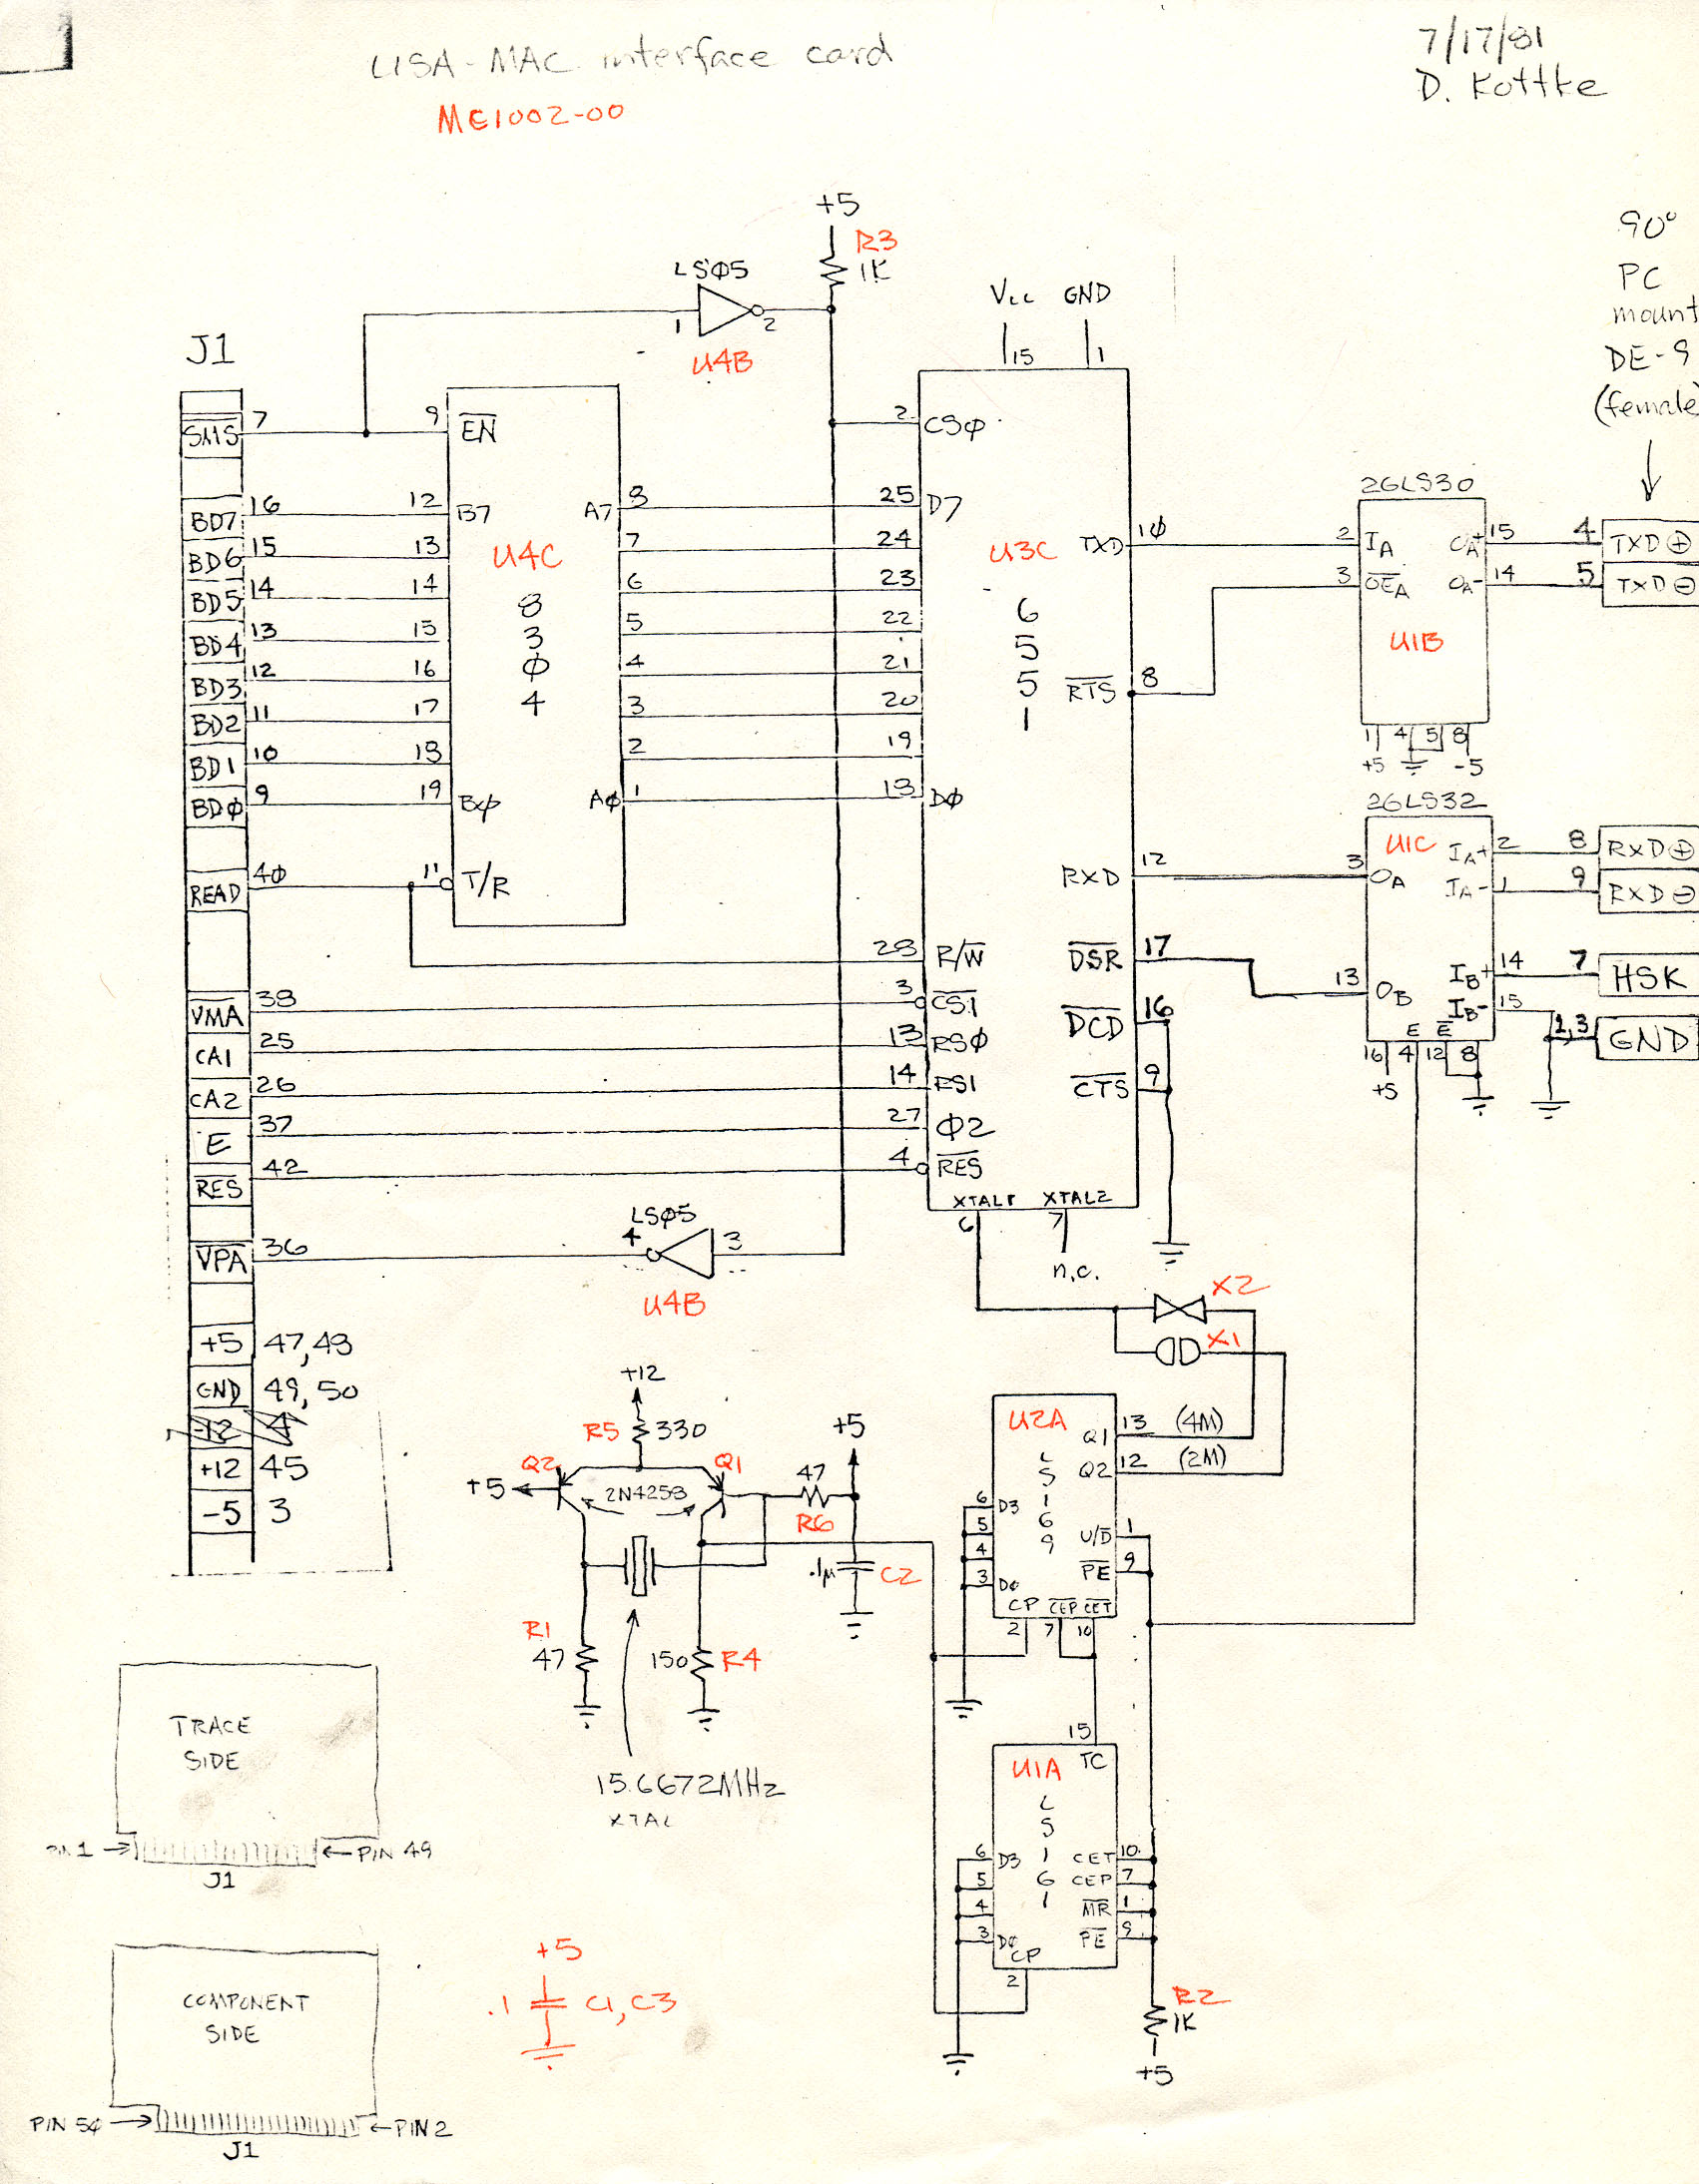 LISA-MAC interface card
ME1002-00
7/17/81
D. Kottke
90°
PC
mount
DE-9
(female)
+5
R3
1K
LSφ5
1 2
U4B
Vcc GND
15 1
J1
SMS 7
BD7 16
BD6 15
BD5 14
BD4 13
BD3 12
BD2 11
BD1 10
BDφ 9
READ 4φ
VMA 38
CA1 25
CA2 26
E 37
RES 42
VPA 36
+5 47,48
GND 49, 50
-12 4
+12 45
-5 3
9 EN
12 B7 A7 8
13 7
14 6
15 5
16 4
17 3
18 2
19 Bφ Aφ 1
11 T/R
U4C
8
3
φ
4
2 CSφ
25 D7
24
23
22
21
20
19
18 Dφ
28 R/W
3 CS1
13 RSφ
14 RS1
27 φ2
4 RES
U3C
6
5
5
1
TXD 1φ
RTS 8
RXD 12
DSR 17
DCD 16
CTS 9
XTAL1 XTAL2
6 7
n.c.
26LS30
2 IA OA+ 15 4 TXD ⊕
3 OEA OA- 14 5 TXD ⊖
U1B
1 4 5 8
+5 -5
26LS32
U1C
3 OA IA+ 2 8 RXD ⊕
IA- 1 9 RXD ⊖
13 OB IB+ 14 7 HSK
IB- 15 1,3 GND
E E
16 4 12 8
+5
LSφ5
4 3
U4B
X2
X1
+12
R5 330
Q2 Q1
+5
2N4258
47
R6
+5
.1μ C2
R1
47
150 R4
15.6672MHz
XTAL
U2A
LS169
Q1 13 (4M)
Q2 12 (2M)
6 D3
5
4
3 Dφ
U/D 1
PE 9
CP CEP CET
2 7 10
15
TC
U1A
LS161
6 D3
5
4
3 Dφ
CET 10
CEP 7
MR 1
PE 9
CP
2
R2
1K
+5
TRACE
SIDE
PIN 1 PIN 49
J1
COMPONENT
SIDE
PIN 5φ PIN 2
J1
+5
.1 C1, C3